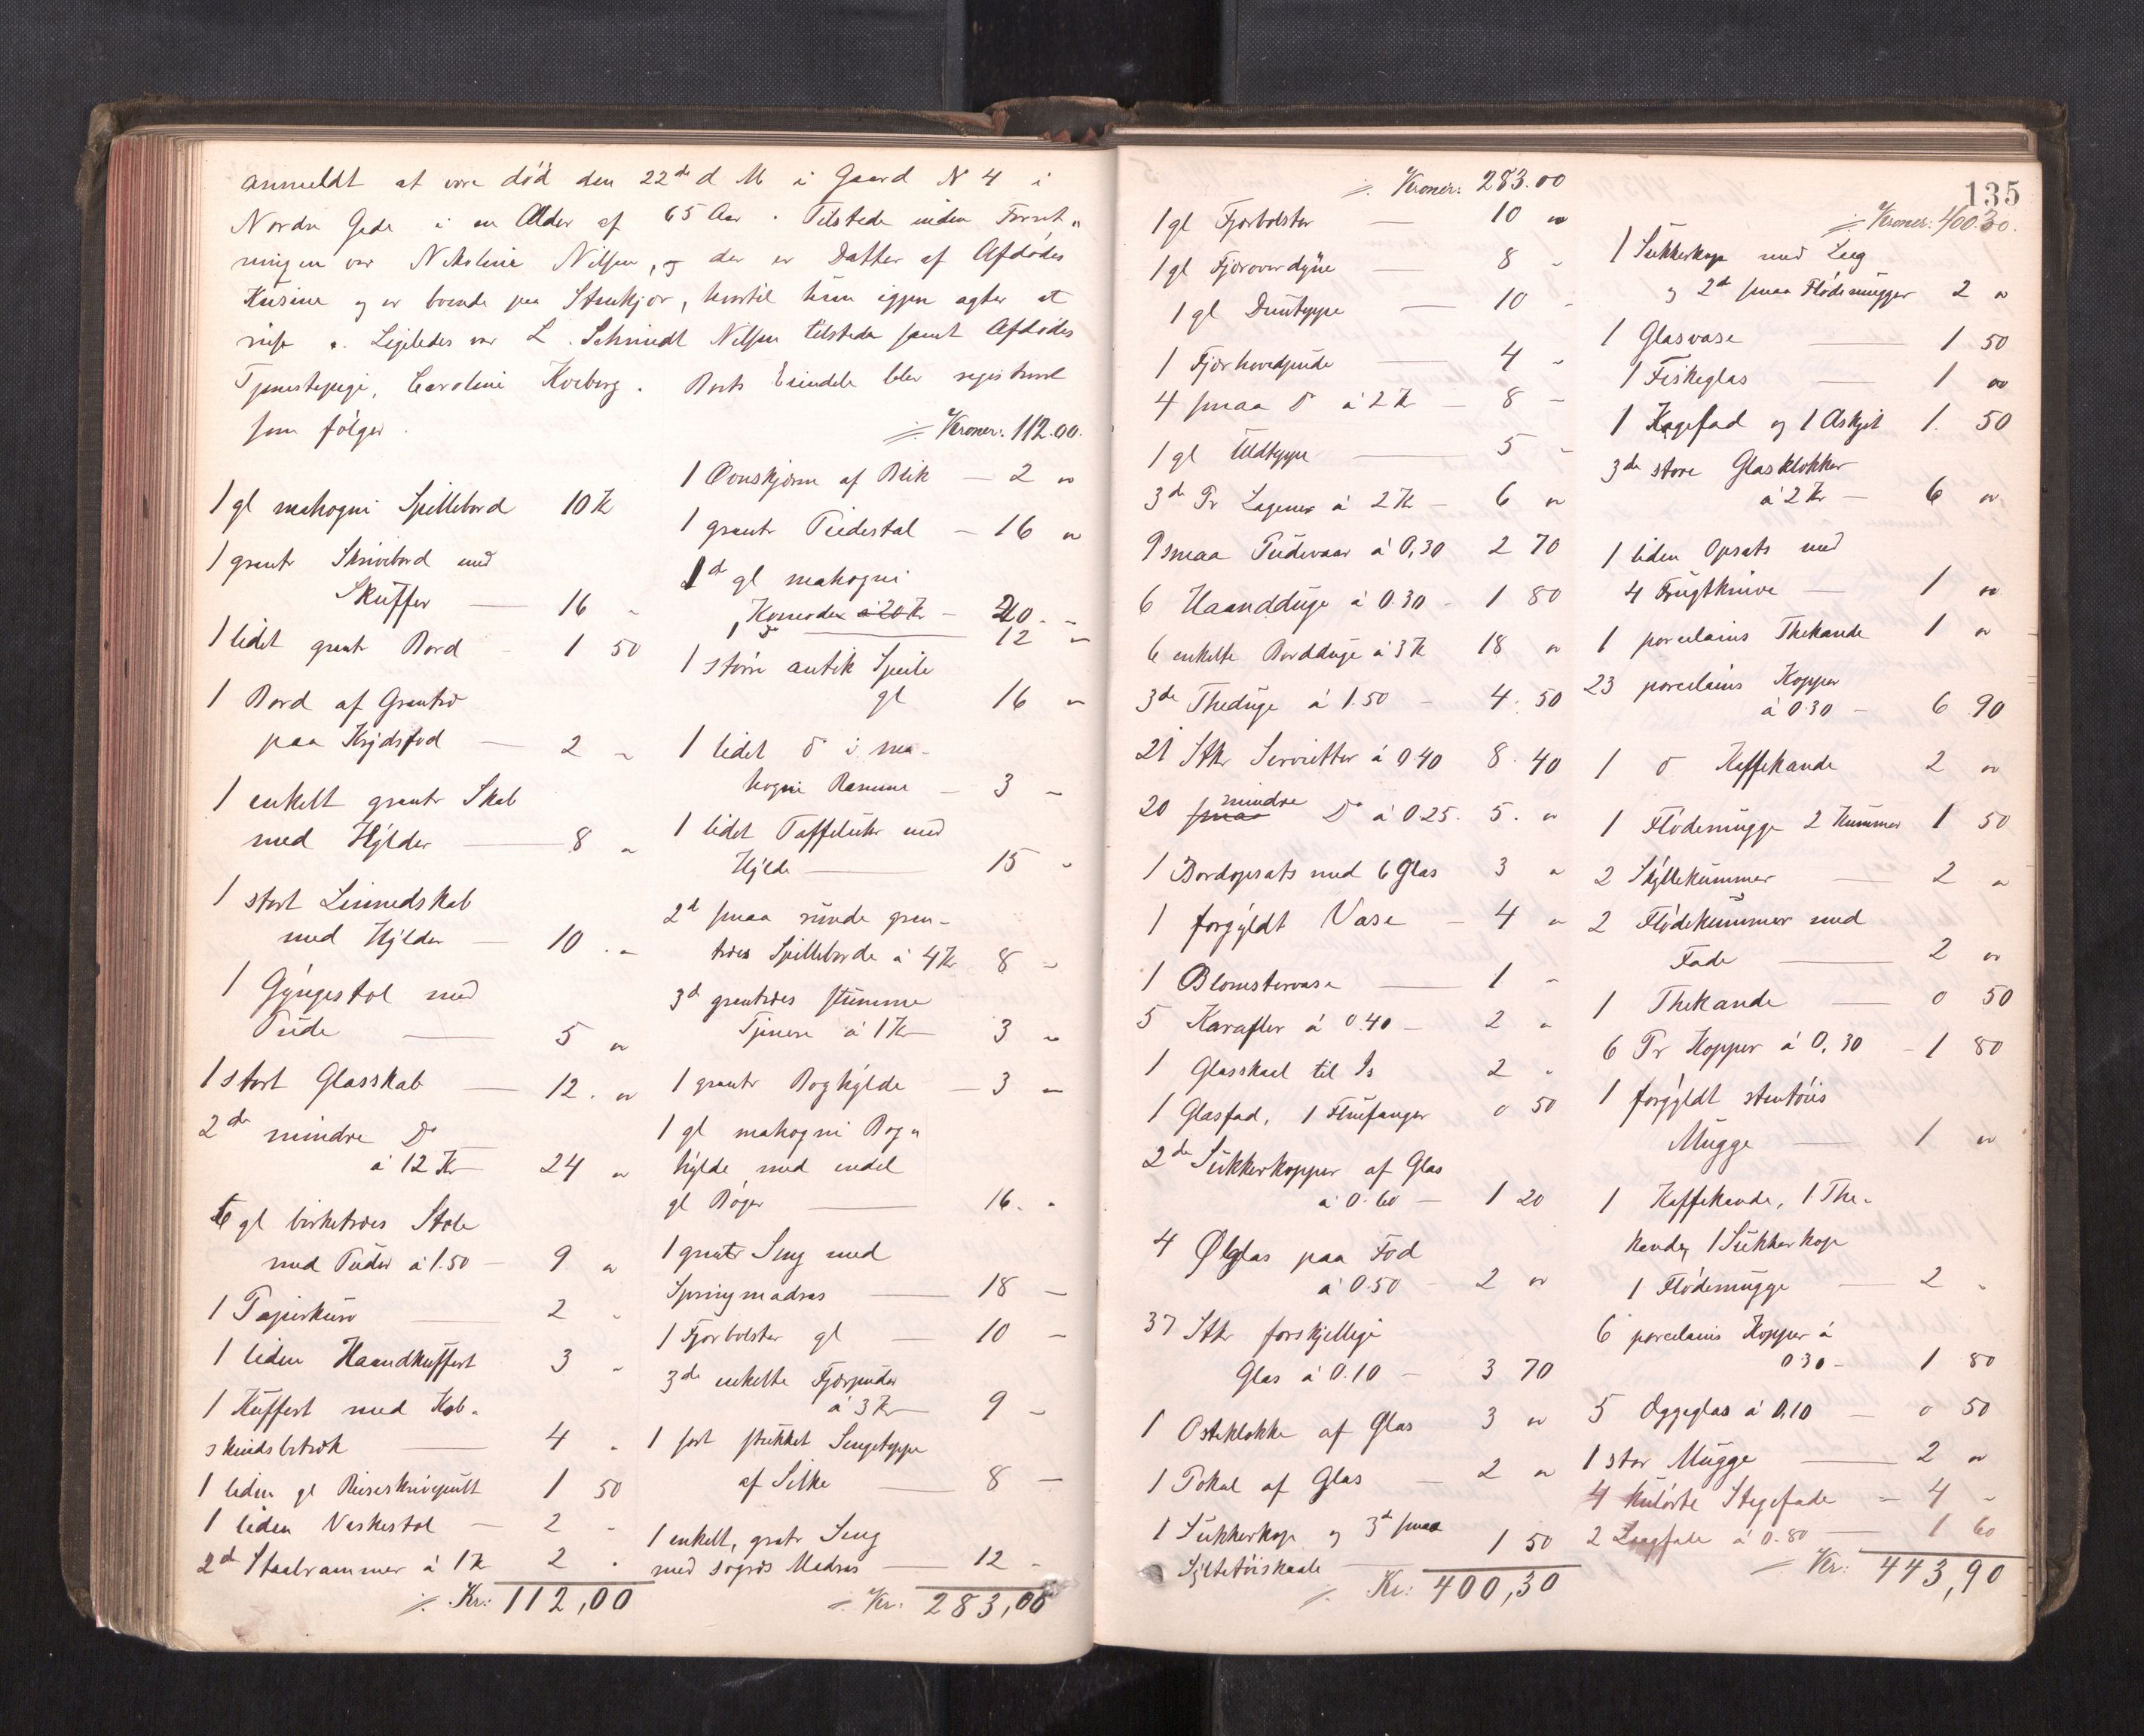 anmeldt at være död den 22de d M i Gaard N 4 i
Nordre Gade i en Alder af 65 Aar. Tilstede under Forret„
ningen var Nikoline Nilsen, og der er Datter af Afdödes
Kusine og er boende paa Stenkjær, hvortil hun igjen agter at
reise. Ligeledes var L. Schmidt Nilsen tilstede samt Afdödes
Tjenestepige, Caroline Korborg. Boets Eiendele blev registreret
som fölger.
1 gl mahogni Spillebord 10 Kr
1 grantr Skrivebord med
Skuffer — 16 "
1 lidet grantr Bord - 1 50
1 Bord af Grantræ
paa Krydsfod — 2 "
1 enkelt grantr Skab
med Hylder — 8 "
1 stort Linnedskab
med Hylder — 10 . "
1 Gyngestol med
Pude — 5 "
1 stort Glasskab — 12 . "
2de mindre Do
à 12 Kr — 24 "
6 gl birketræes Stole
med Puder à 1.50 — 9 "
1 Papirkurv — 2 "
1 liden Haandkuffert 3 "
1 Kuffert med Kob-
skindsbetræk — 4 "
1 liden gl Reiseskrivepult 1 50
1 liden Vaskestol — 2 "
2d Staalrammer à 1 Kr 2 "
./. Kr: 112,00
./. Kroner: 112.00.
1 Ovnskjærm af Blik — 2 "
1 grantr Piedestal — 16 "
1d gl mahogni
Komoder à 20 Kr — 20 . "
1 do — 12 "
1 större antik Speile
gl 16 "
1 lidet do i ma-
hogni Ramme — 3 "
1 lidet Taffeluhr med
Hylde — 15 "
2d smaa runde gran-
træes Spilleborde à 4 Kr 8 "
3d grantræes stumme
Tjenere à 1 Kr — 3 "
1 grantr Boghylde — 3 "
1 gl mahogni Bog„
hylde med endel
gl Böger — 16 . "
1 grantr Seng med
Springmadras — 18 —
1 Fjærbolster gl — 10 —
3de enkelte Fjærpuder
à 3 Kr — 9 —
1 sort stukket Sengetæppe
af Silke — 8 —
1 enkelt, grantr Seng
med Madras — 12 "
./. Kr: 283,00
./. Kroner: 283.00
1 gl Fjærbolster — 10 "
1 gl Fjæroverdyne — 8 "
1 gl Duntæppe — 10 "
1 Fjærhovedpude — 4 "
4 smaa do à 2 Kr — 8 "
1 gl Uldtæppe — 5 "
3de Pr Lagener à 2 Kr — 6 "
9 smaa Pudevaar à 0,30 2 70
6 Haandduge à 0.30 - 1 80
6 enkelte Bordduge à 3 Kr 18 "
3de Theduge à 1.50 — 4. 50
21 Stkr Servietter à 0.40 8. 40
20 smaa mindre Do à 0.25. 5. "
1 Bordopsats med 6 Glas 3 "
1 forgyldt Vase — 4 "
1 Blomstervase — 1 "
5 Karafler à 0.40 — 2 "
1 Glasskael til Is 2 "
1 Glasfad, 1 Fluefanger 0 50
2de Sukkerkopper af Glas
à 0.60 — 1 20
4 Ølglas paa Fod
à 0.50 — 2 "
37 Stkr forskjellige
Glas à 0.10 — 3 70
1 Osteklokke af Glas 3 "
1 Pokal af Glas — 2 "
1 Sukkerkop og 3d smaa
Syltetöiskaale — 1 50
./. Kr: 400,30
135
./. Kroner: 400.30.
1 Sukkerkop med Laag
og 2d smaa Flödemugger 2 "
1 Glasvase — 1 50
1 Fiskeglas — 1 "
1 Kagefad og 1 Askjet 1. 50
3de store Glasklokker
à 2 Kr — 6 "
1 liden Opsats med
4 Frugtknive — 1 "
1 porcelains Thekande 1 "
23 porcelains Kopper
à 0.30 — 6 90
1 do Kaffekande 2 "
1 Flödemugge 2 Kummer 1 50
2 Skyllekummer — 2 "
2 Flödekummer med
Fade — 2 "
1 Thekande — 0 50
6 Pr Kopper à 0,30 - 1 80
1 forgyldt stentöis
Mugge — 1 "
1 Kaffekande, 1 The-
kande, 1 Sukkerkop
1 Flödemugge — 2 "
6 porcelains Kopper à
0.30 — 1 80
5 Æggeglas à 0,10 — 0 50
1 stor Mugge — 2 "
4 kulörte Stegefade — 4 "
2 à 0.80 — 1 60
./. Kr: 443,90